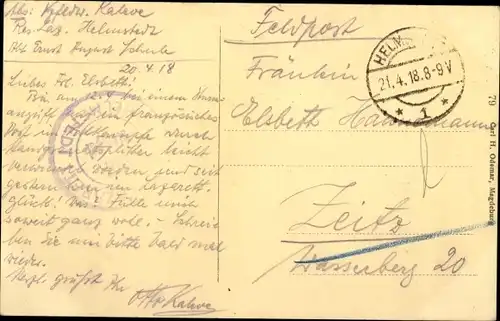 Abs: Vzfeldw. Kalwe
Res. Laz. Helmstedt
Abt. Ernst August Schule
20.4.18
Liebes Frl. Elsbeth!
Bin am 12.4 bei einem Sturm-
angriff auf ein französisches
durch
Handgranatsplitter leicht
verwundet worden und seit
gestern hier im Lazarett.
Glück! Im Fühle mich
soweit ganz wohl. - Schrei-
ben Sie mir bitte bald mal
wieder.
Herzl. grüßt Ihr
Otto Kalwe
Feldpost
HELMSTEDT
21.4.18.8-9V
* 1 *
Fräulein
Elsbeth
Zeitz
Wasserberg 20
79
Carl H. Odemar, Magdeburg